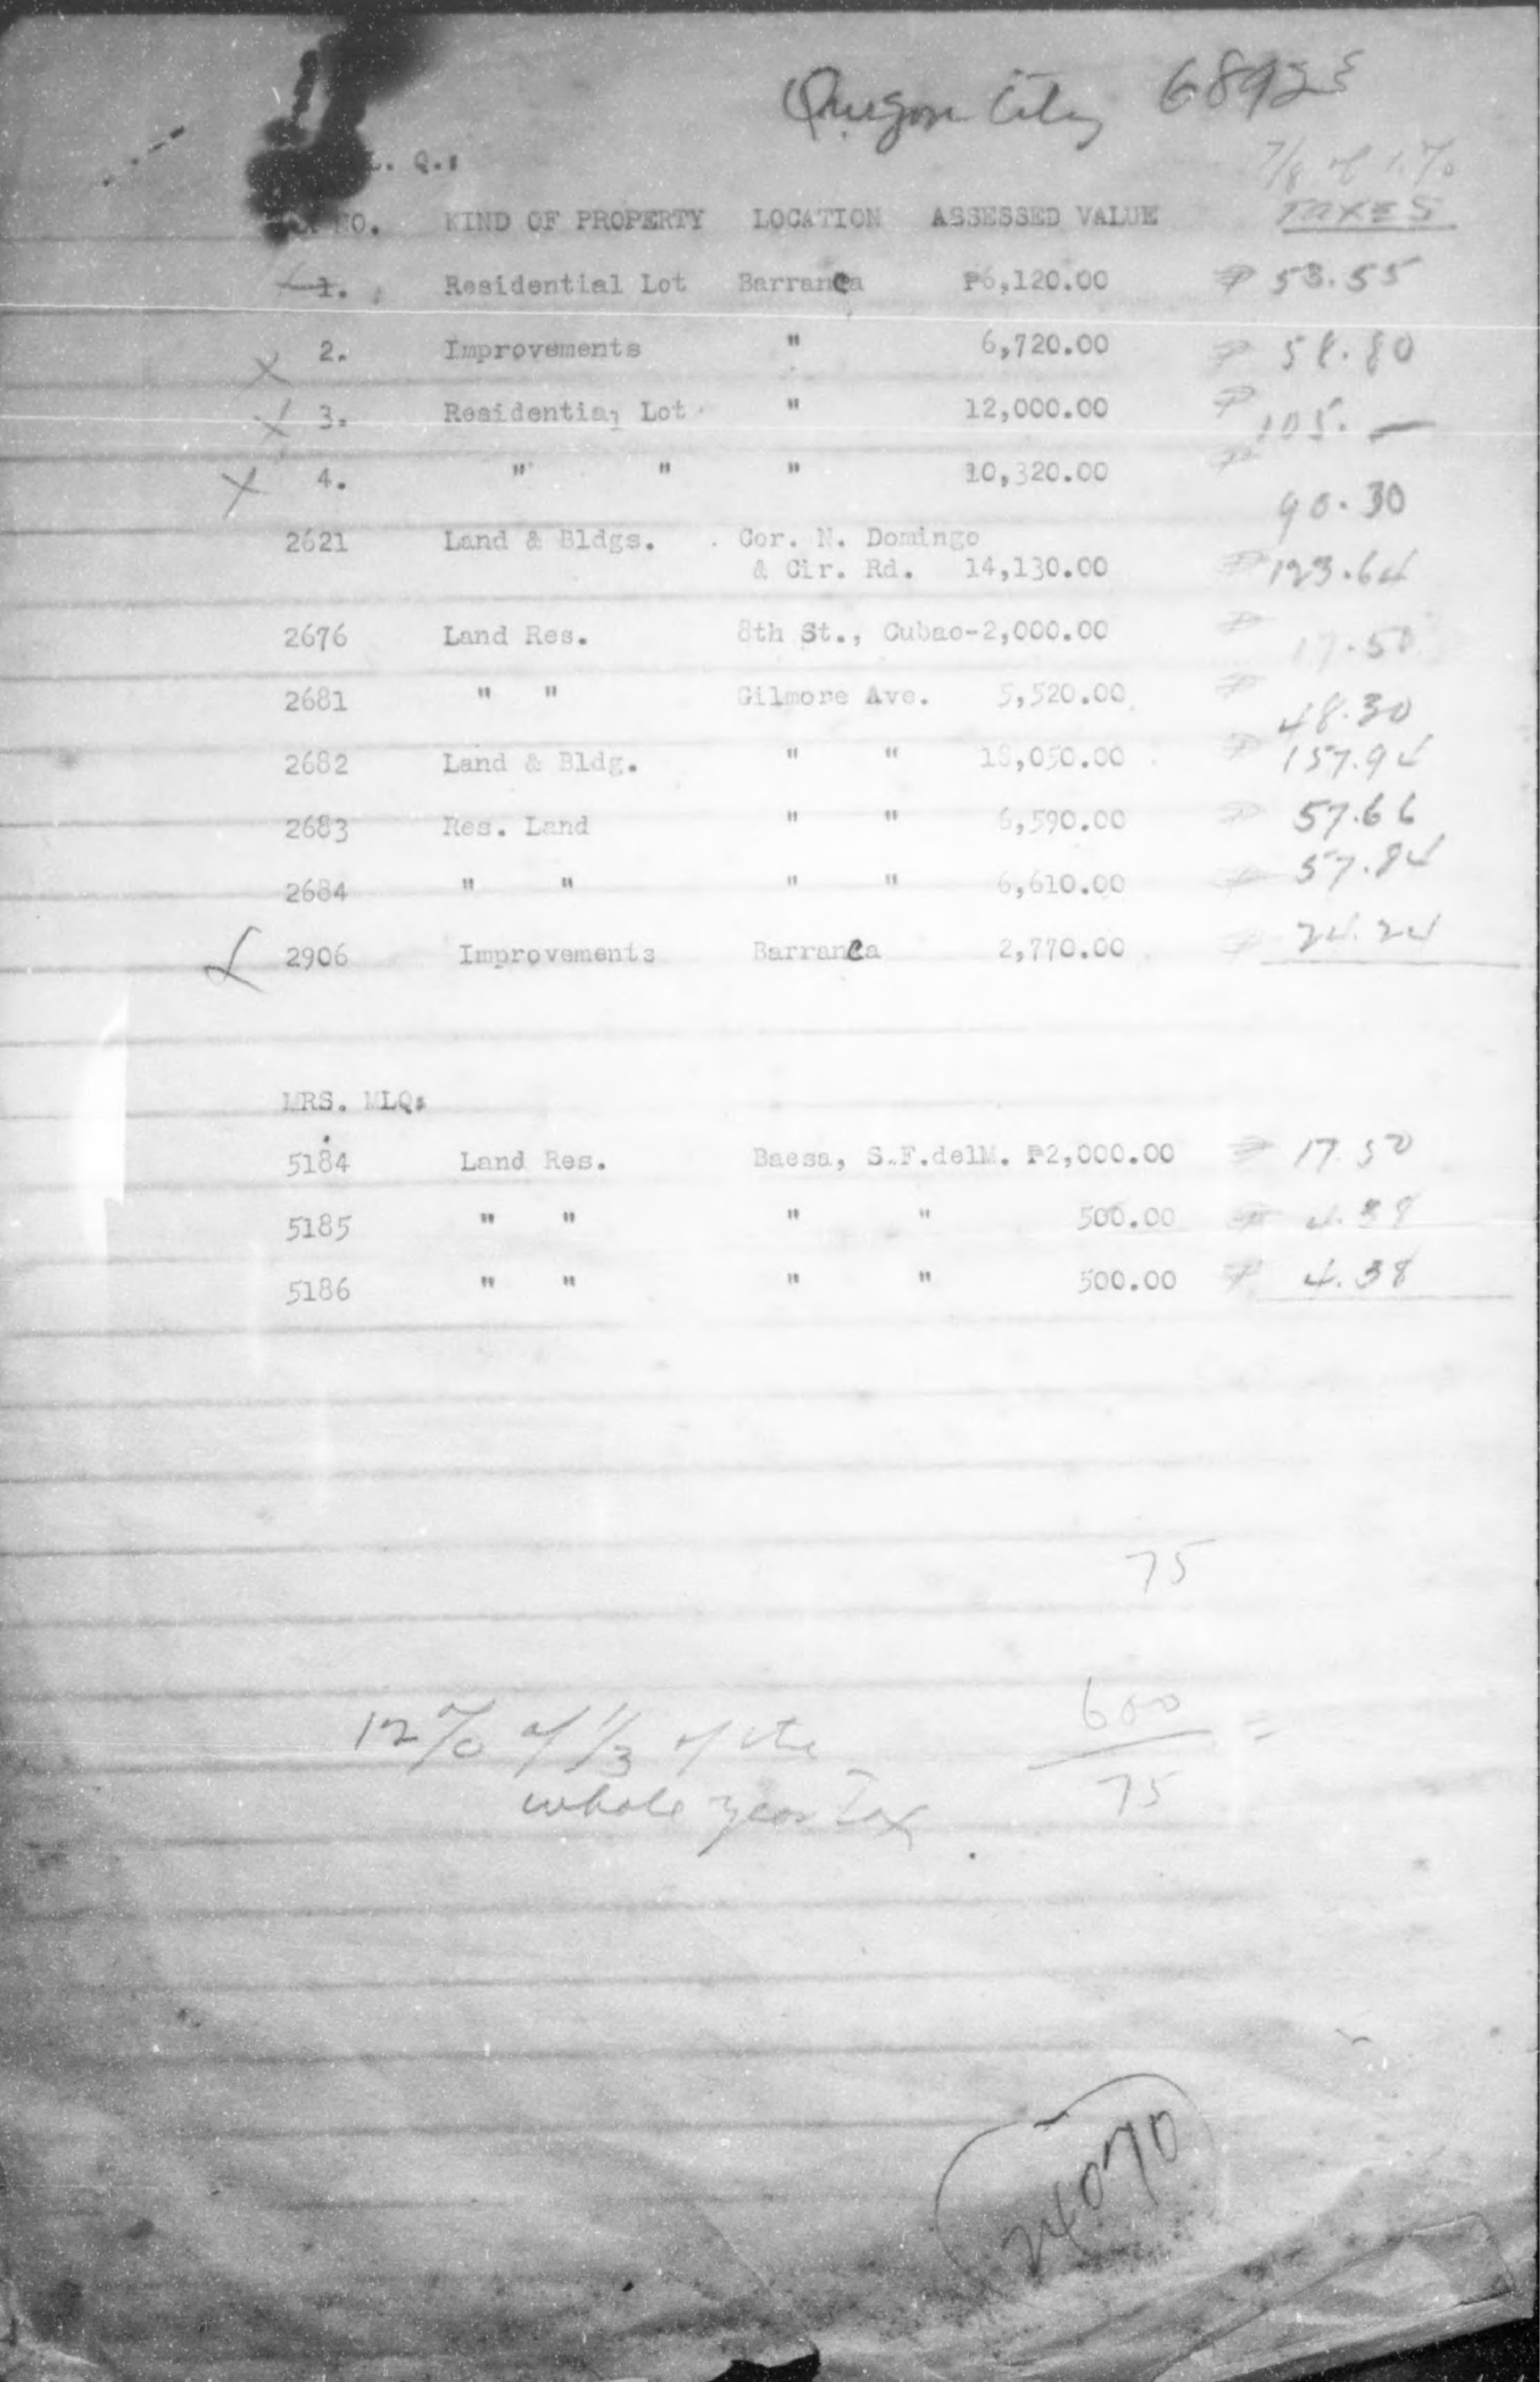 City 6892
L. Q.:
7/8 of 1 %
NO. KIND OF PROPERTY LOCATION ASSESSED VALUE TAXES
1. Residential Lot Barranca ₱6,120.00 ₱ 53.55
x 2. Improvements " 6,720.00 ₱ 58.80
x 3. Residential Lot " 12,000.00 ₱ 105. —
x 4. " " " 10,320.00 ₱ 90.30
2621 Land & Bldgs. Cor. N. Domingo
& Cir. Rd. 14,130.00 ₱ 123.64
2676 Land Res. 8th St., Cubao-2,000.00 ₱ 17.50
2681 " " Gilmore Ave. 5,520.00 ₱ 48.30
2682 Land & Bldg. " " 18,050.00 ₱ 157.94
2683 Res. Land " " 6,590.00 ₱ 57.66
2684 " " " " 6,610.00 ₱ 57.84
2906 Improvements Barranca 2,770.00 ₱ 24.24
MRS. MLQ:
5184 Land Res. Baesa, S.F.delM. ₱2,000.00 ₱ 17.50
5185 " " " " 500.00 ₱ 4.38
5186 " " " " 500.00 ₱ 4.38
75
12% of 1/3 of the
whole year Tax
600 =
75
24070